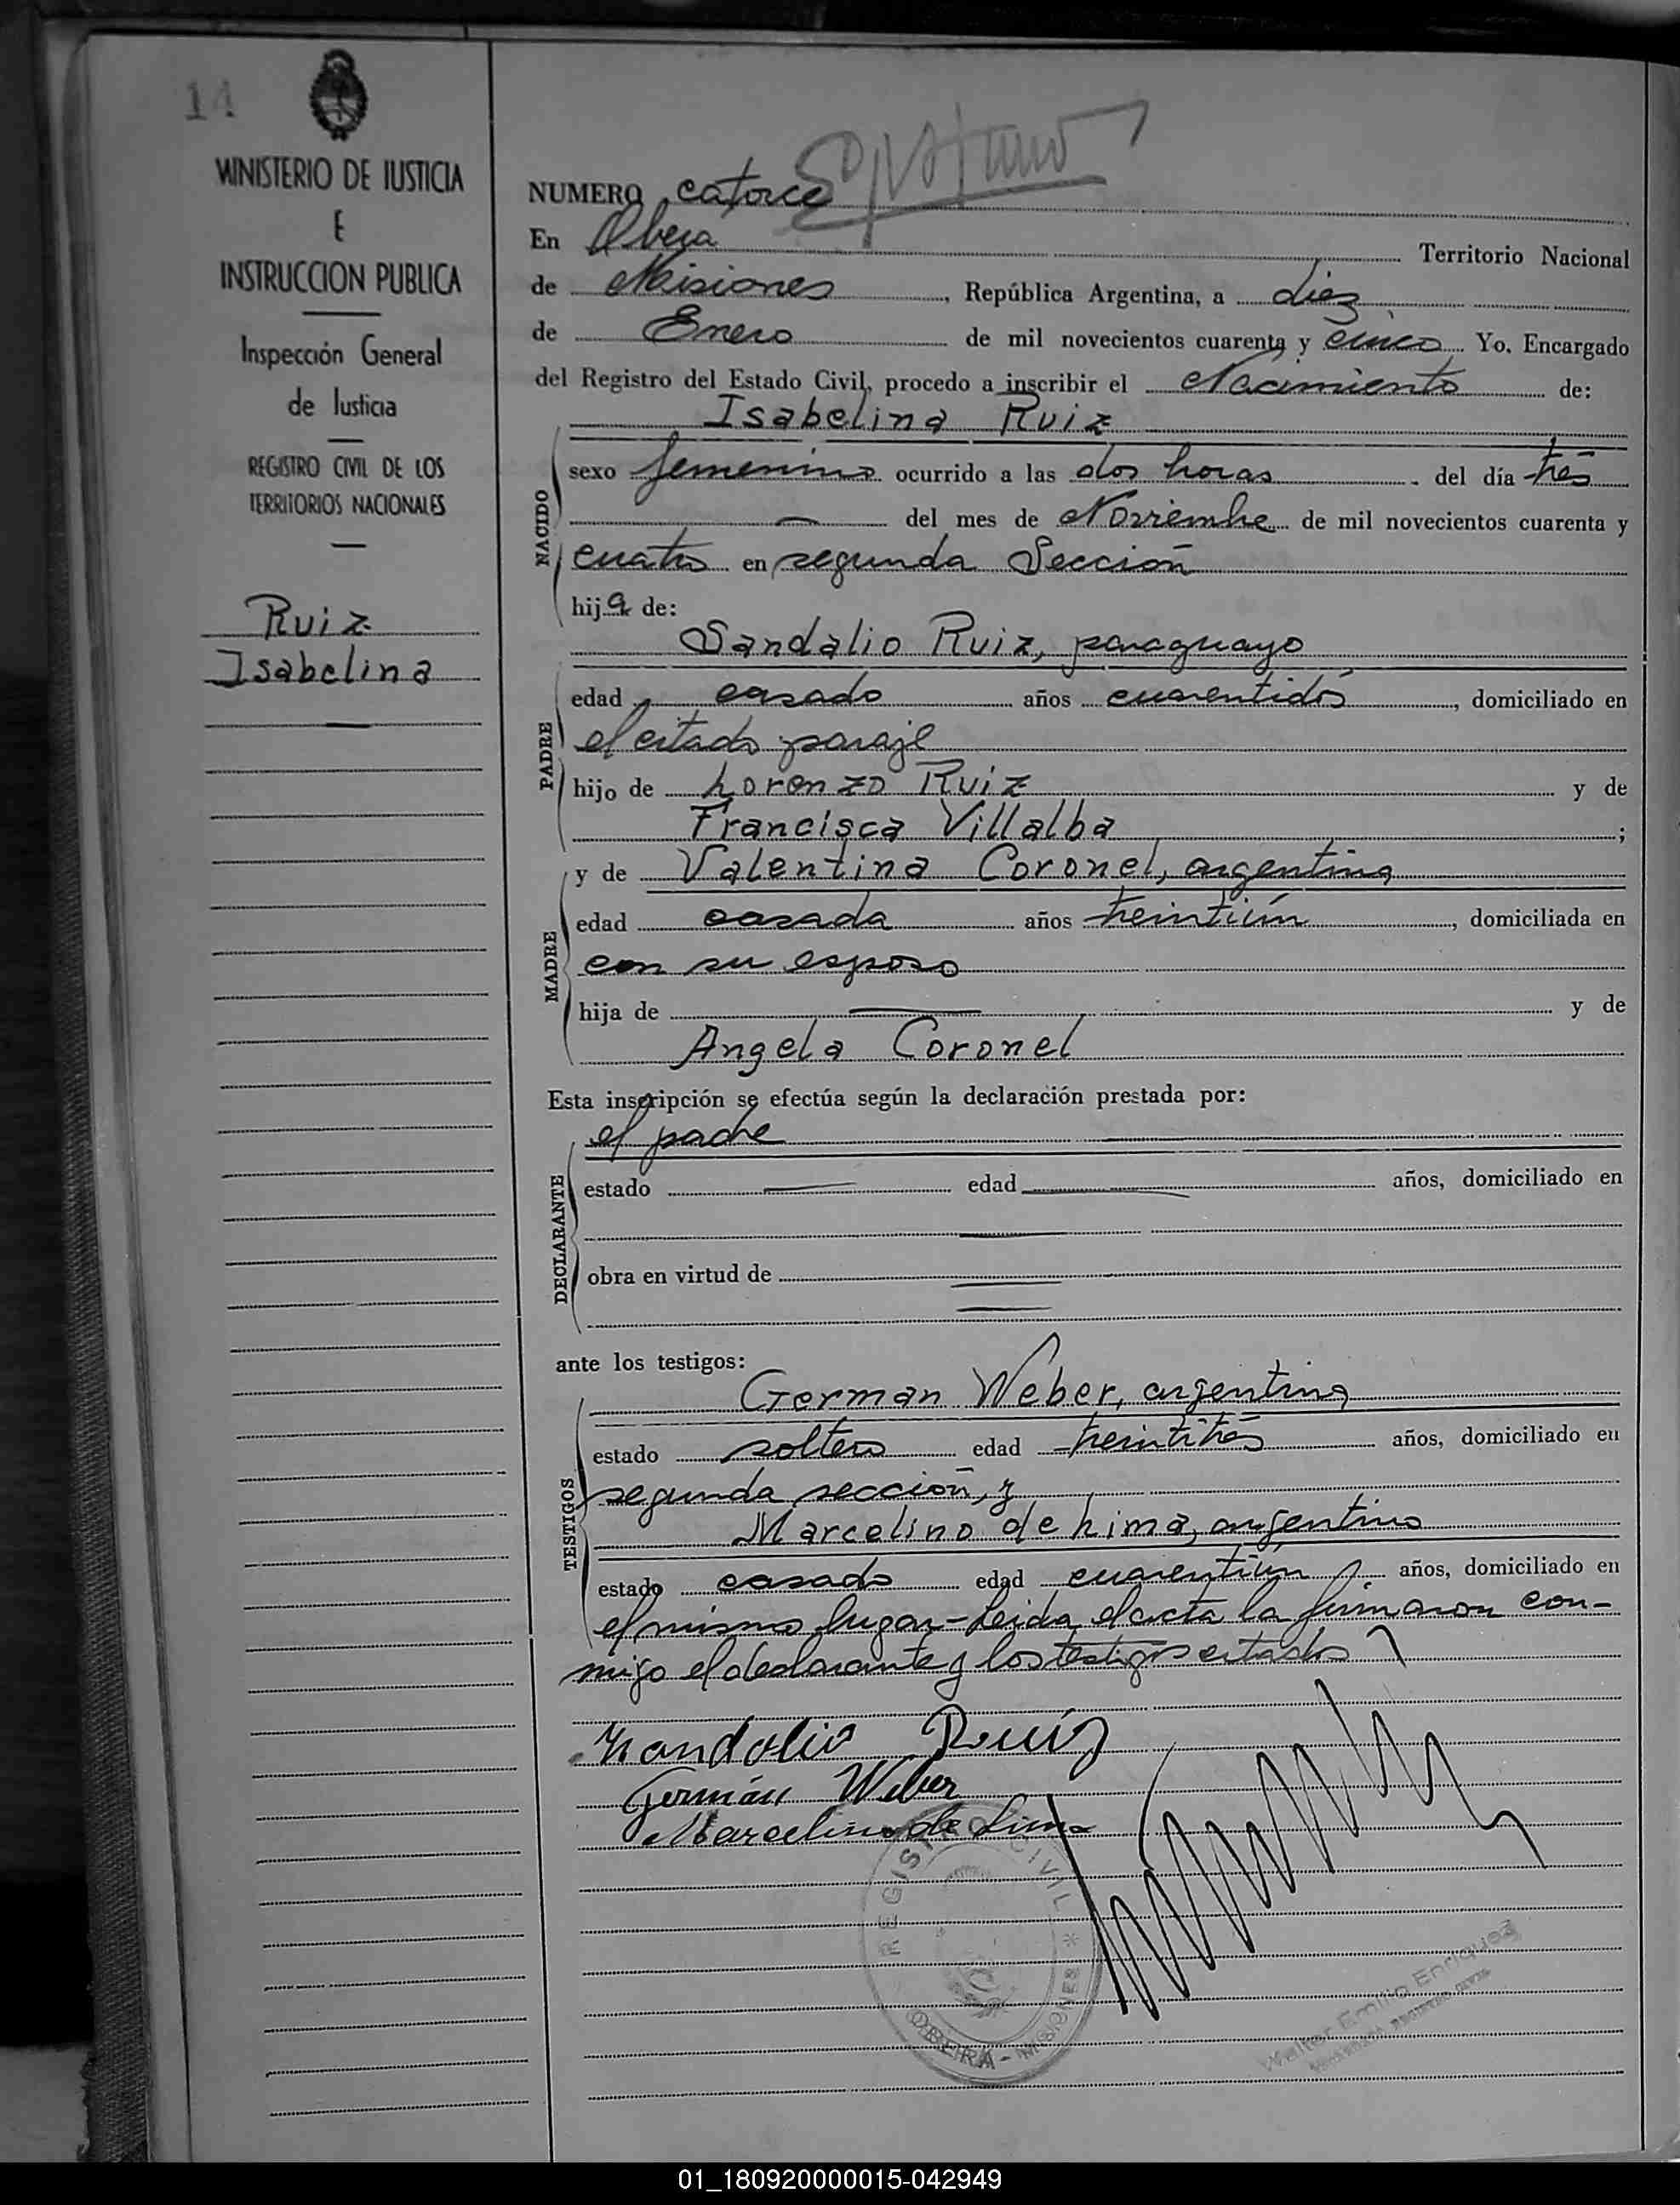 14
MINISTERIO DE JUSTICIA
E
INSTRUCCION PUBLICA
Inspección General
de Justicia
REGISTRO CIVIL DE LOS
TERRITORIOS NACIONALES
Ruiz
Isabelina
NUMERO catorce
En Obera Territorio Nacional
de Misiones, República Argentina, a diez
de Enero de mil novecientos cuarenta y cinco Yo. Encargado
del Registro del Estado Civil, procedo a inscribir el Nacimiento de:
Isabelina Ruiz
NACIDO
sexo femenino ocurrido a las dos horas del día tres
del mes de Noviembre de mil novecientos cuarenta y
cuatro en segunda Sección
hija de:
Sandalio Ruiz, paraguayo
PADRE
edad casado años cuarentidós, domiciliado en
el citado paraje
hijo de Lorenzo Ruiz y de
Francisca Villalba;
y de Valentina Coronel, argentina
MADRE
edad casada años treintiún, domiciliada en
con su esposo
hija de y de
Angela Coronel
Esta inscripción se efectúa según la declaración prestada por:
el padre
DECLARANTE
estado edad años, domiciliado en
obra en virtud de
ante los testigos:
German Weber, argentino
TESTIGOS
estado soltero edad treintitrés años, domiciliado en
segunda sección, y
Marcelino de Lima, argentino
estado casado edad cuarentiún años, domiciliado en
el mismo lugar - Leida el acta la firmaron con-
migo el declarante y los testigos citados
Sandalio Ruiz
Germán Weber
Marcelino de Lima
REGISTRO CIVIL
OBERÁ - MISIONES
Walter Emilio Enriquez
01_180920000015-042949